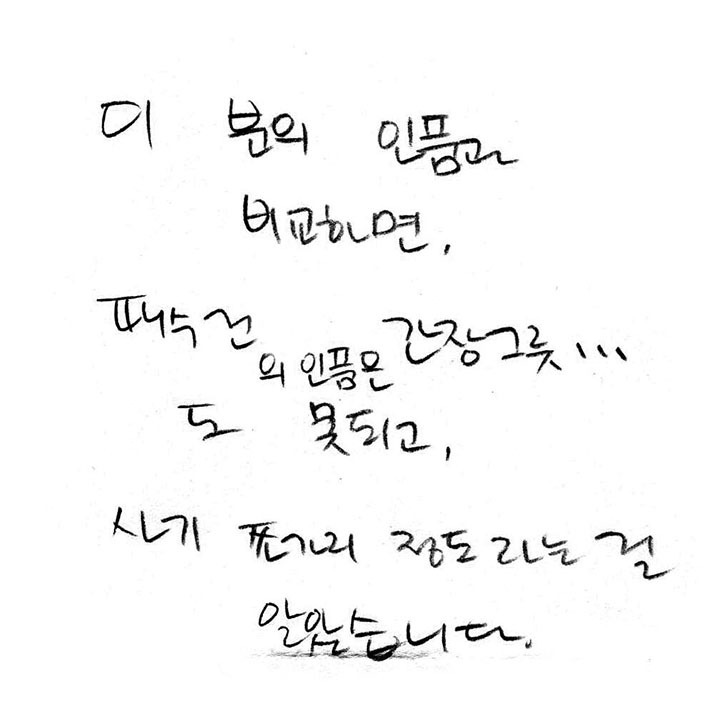 이 분의 인품과
비교하면,
패수건의 인품은 간장그릇...
도 못되고,
사기 쪼가리 정도라는 걸
알았습니다.